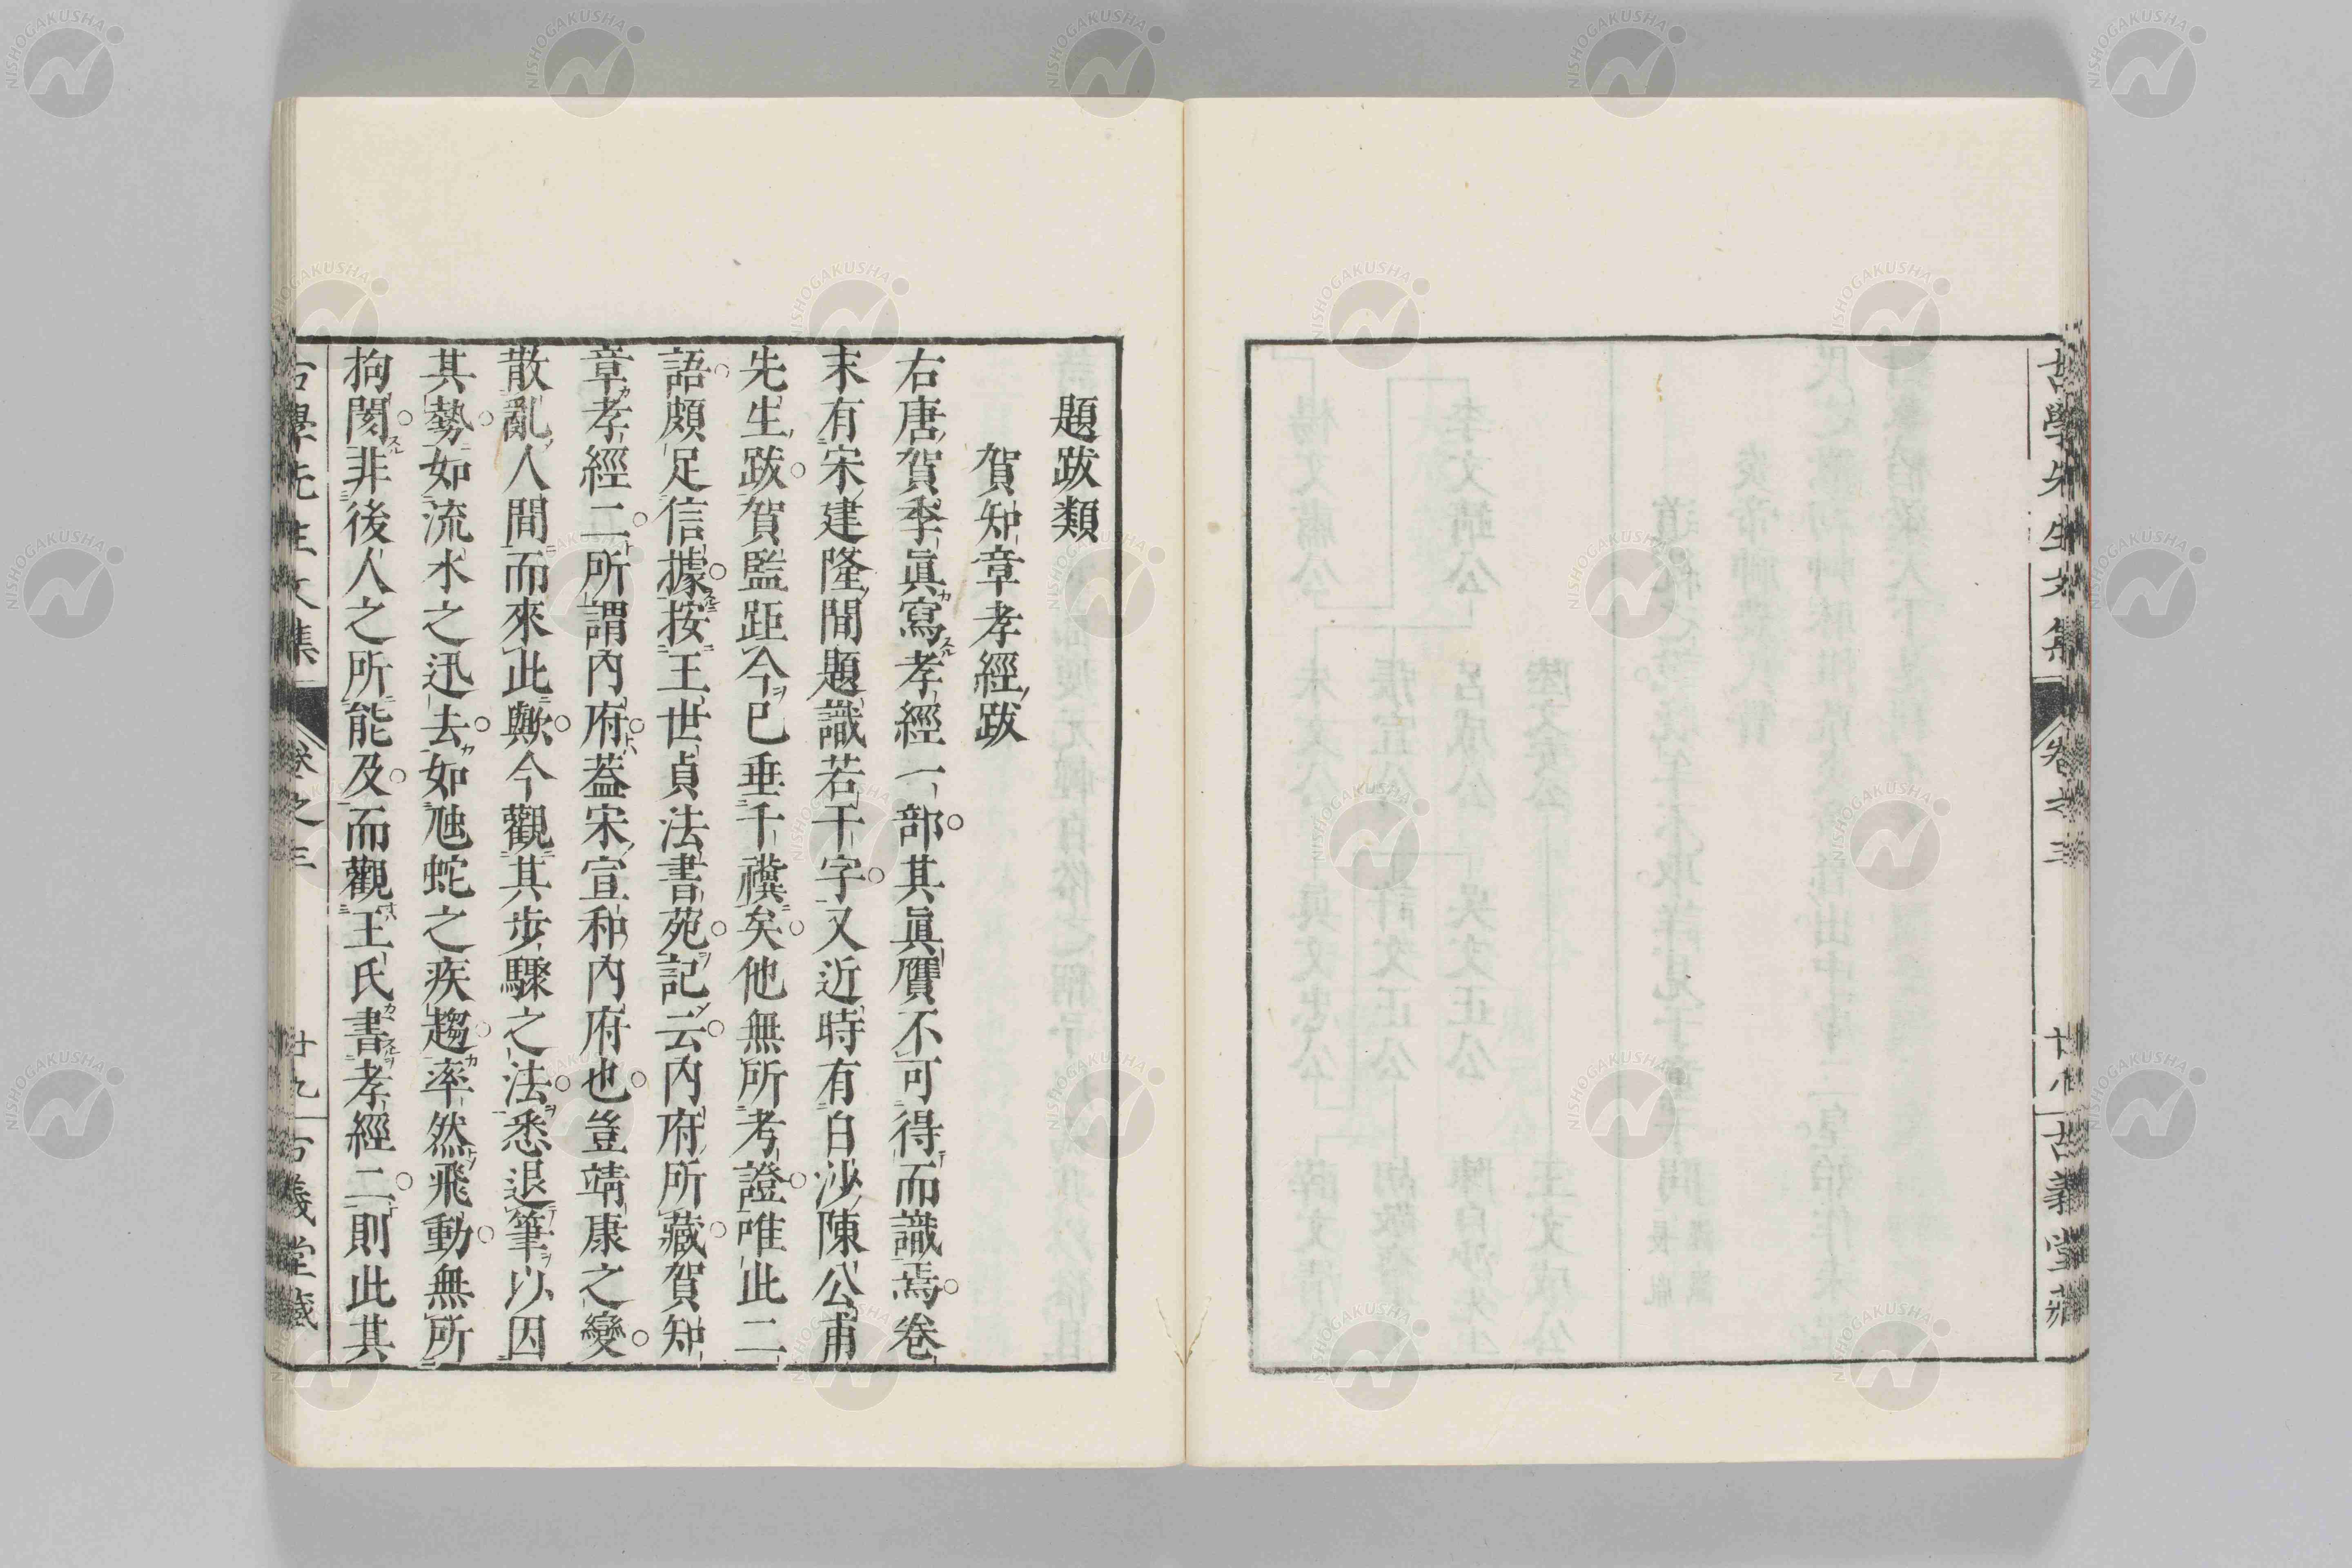 古學先生文集 卷之三 廿八 古義堂藏
題跋類
賀知章孝經跋
右唐賀季眞寫孝經一部其眞贋不可得而識焉卷
末有宋建隆間題識若干字又近時有白沙陳公甫
先生跋賀監距今已垂千禩矣他無所考證唯此二
語頗足信據按王世貞法書苑記云內府所藏賀知
章孝經二所謂內府蓋宋宣和內府也豈靖康之變
散亂人間而來此歟今觀其步驟之法悉退筆以因
其勢如流水之迅去如虺蛇之疾趨率然飛動無所
拘閡非後人之所能及而觀王氏書孝經二則此其
古學先生文集 卷之三 廿九 古義堂藏
NISHOGAKUSHA